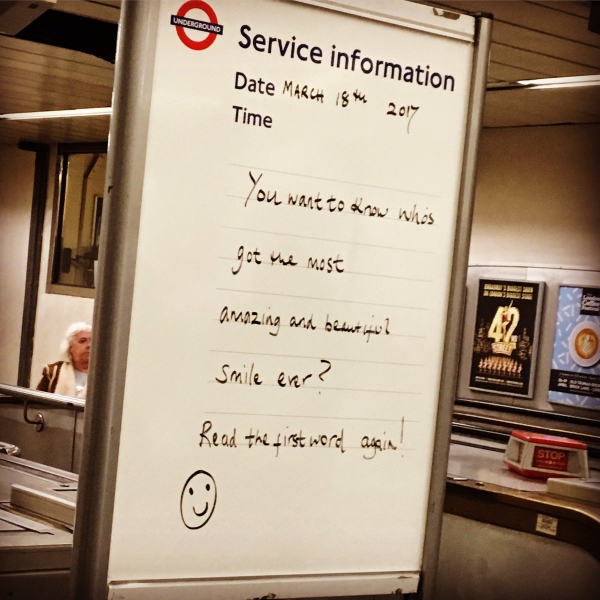 UNDERGROUND
Service information
Date MARCH 18th 2017
Time
You want to know who's
got the most
amazing and beautiful
smile ever?
Read the first word again!
42ND
STREET
STOP